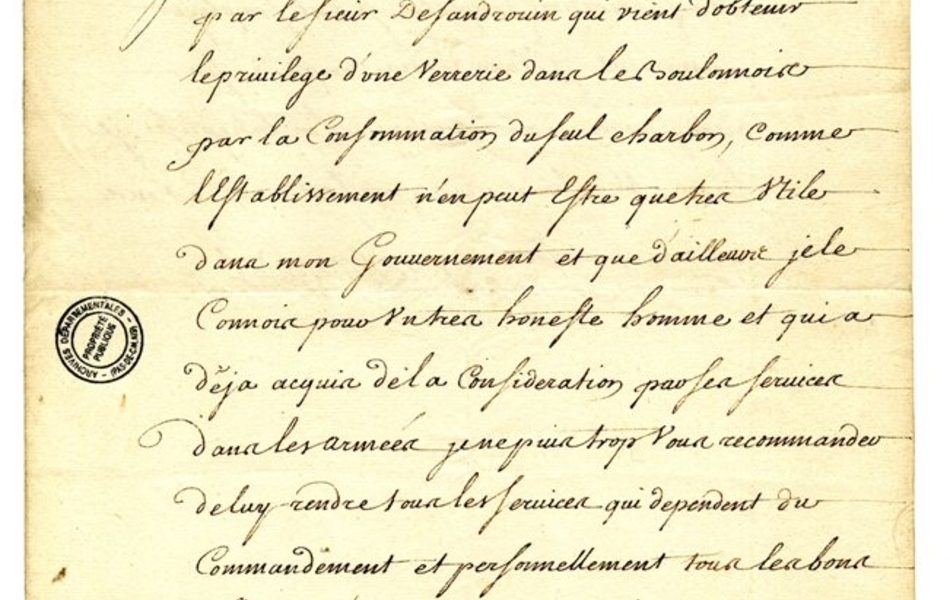 par le Sieur Desandrouin qui vient d'obtenir
le privilege d'vne Verrerie dans le Boulonnois
par la Consommation du seul charbon, comme
l'Establissement n'en peut Estre que tres Vtile
dans mon Gouuernement et que d'ailleurs je le
Connois pour Vn tres honeste homme et qui a
déja acquis de la Consideration par ses seruices
dans les armées je ne puis trop Vous recommander
de luy rendre tous les seruices qui dependent du
Commandement et personnellement tous les bons
ARCHIVES DÉPARTEMENTALES - (PAS-DE-CALAIS) -
PROPRIÉTÉ
PUBLIQUE